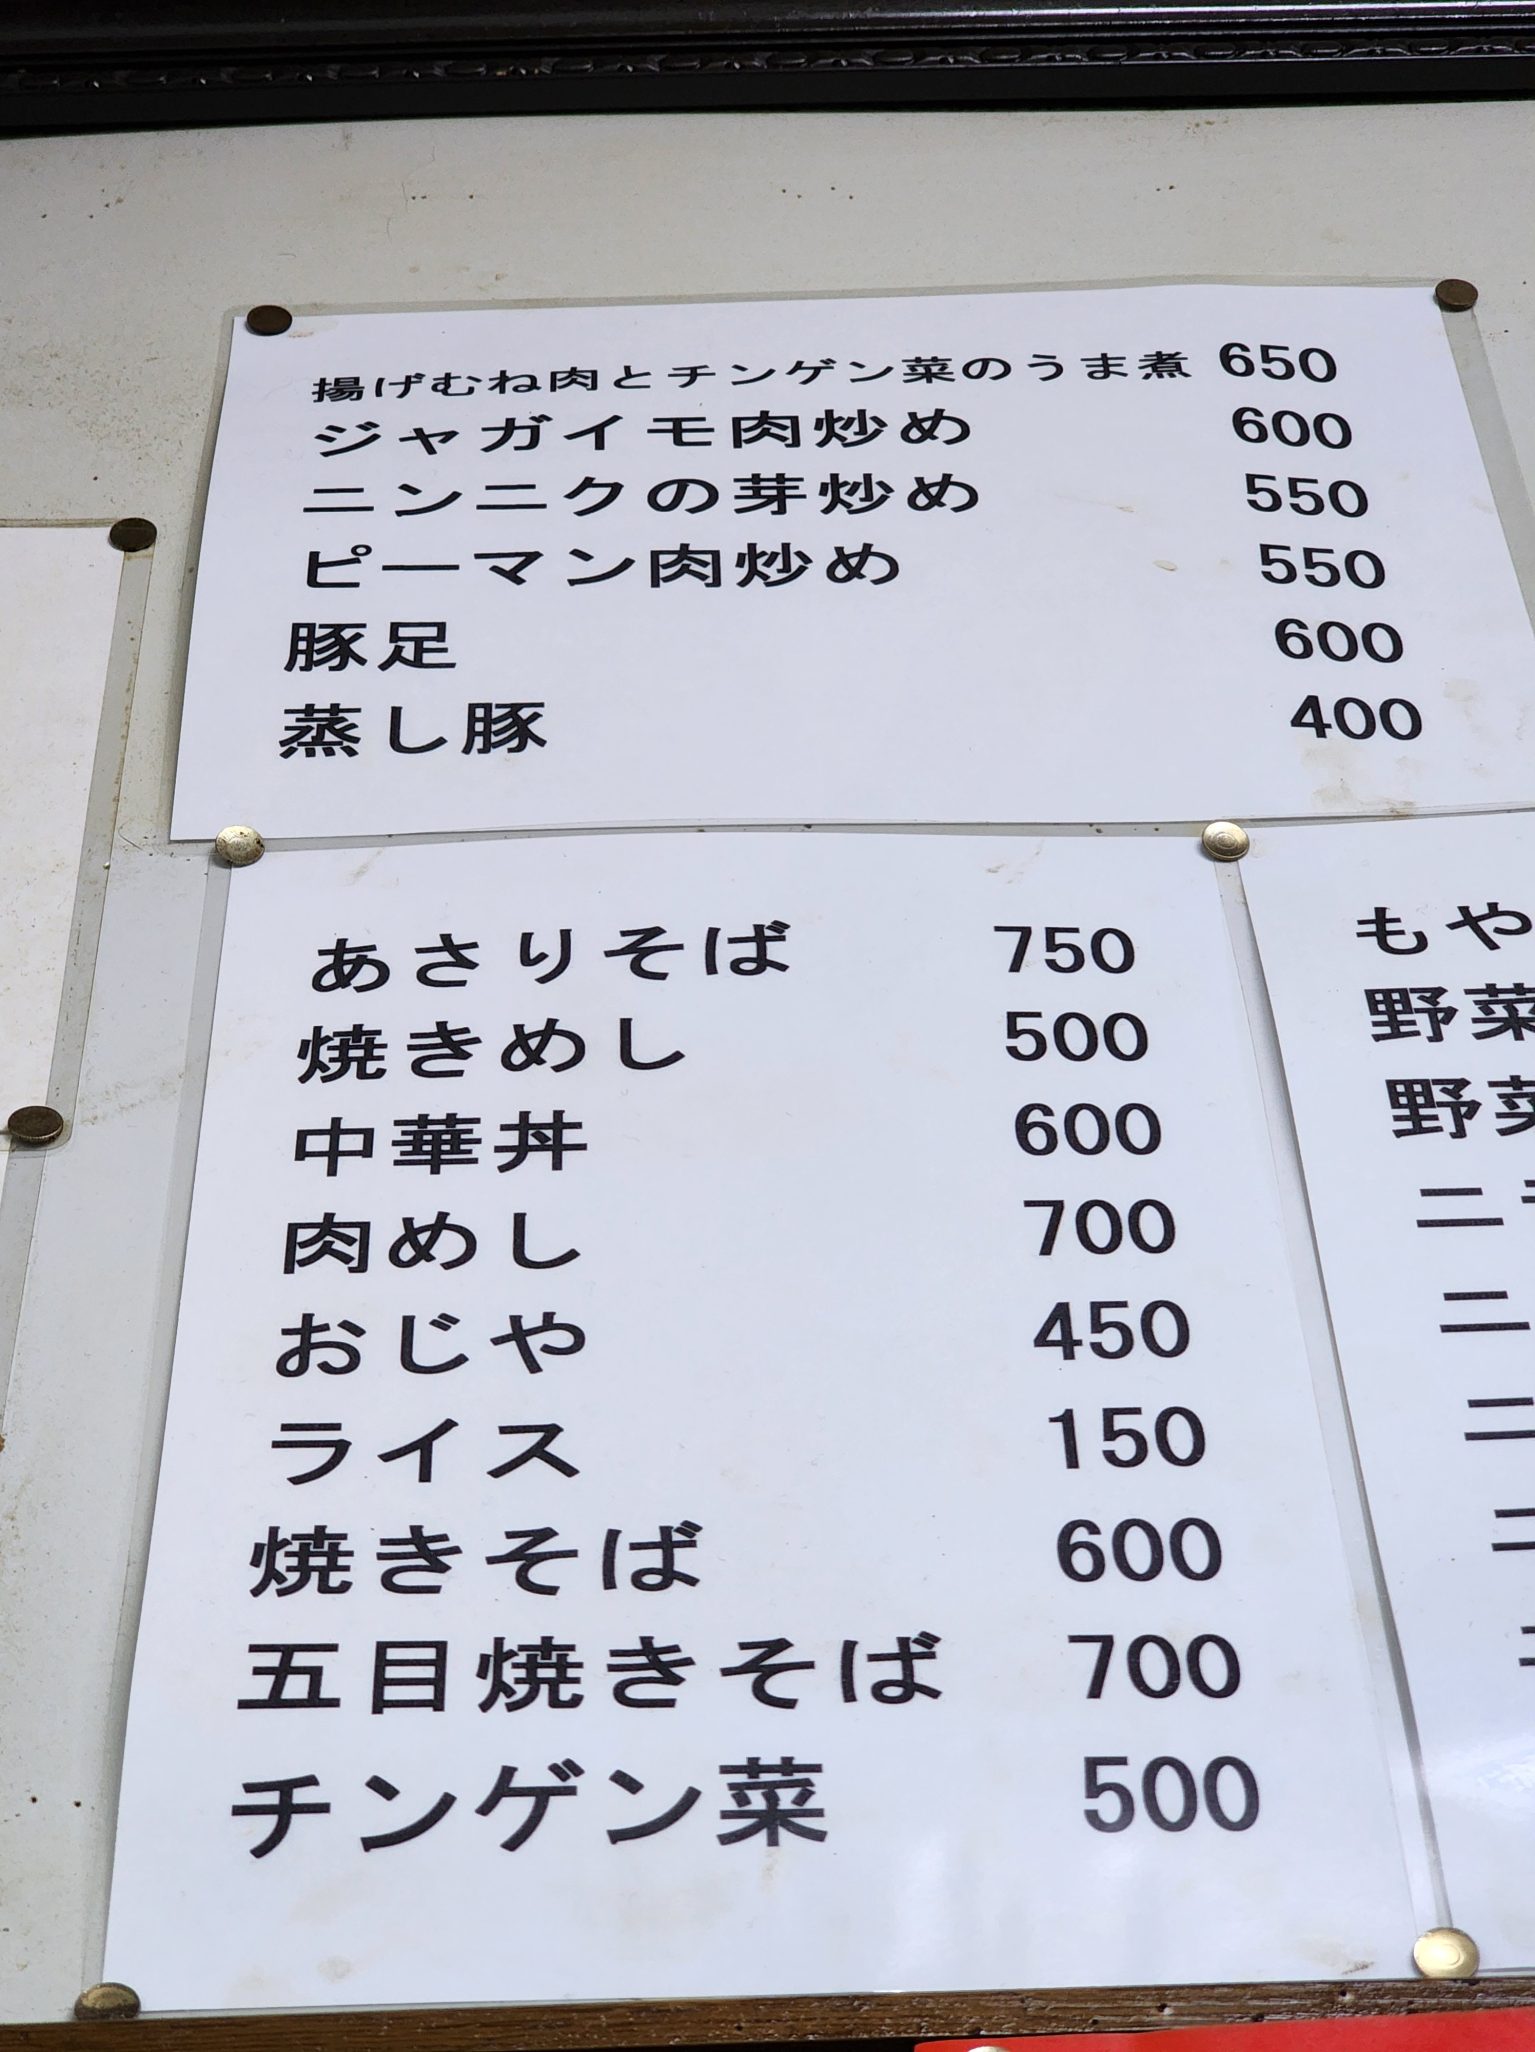 揚げむね肉とチンゲン菜のうま煮 650
ジャガイモ肉炒め 600
ニンニクの芽炒め 550
ピーマン肉炒め 550
豚足 600
蒸し豚 400
あさりそば 750
焼きめし 500
中華丼 600
肉めし 700
おじや 450
ライス 150
焼きそば 600
五目焼きそば 700
チンゲン菜 500
もや
野菜
野菜